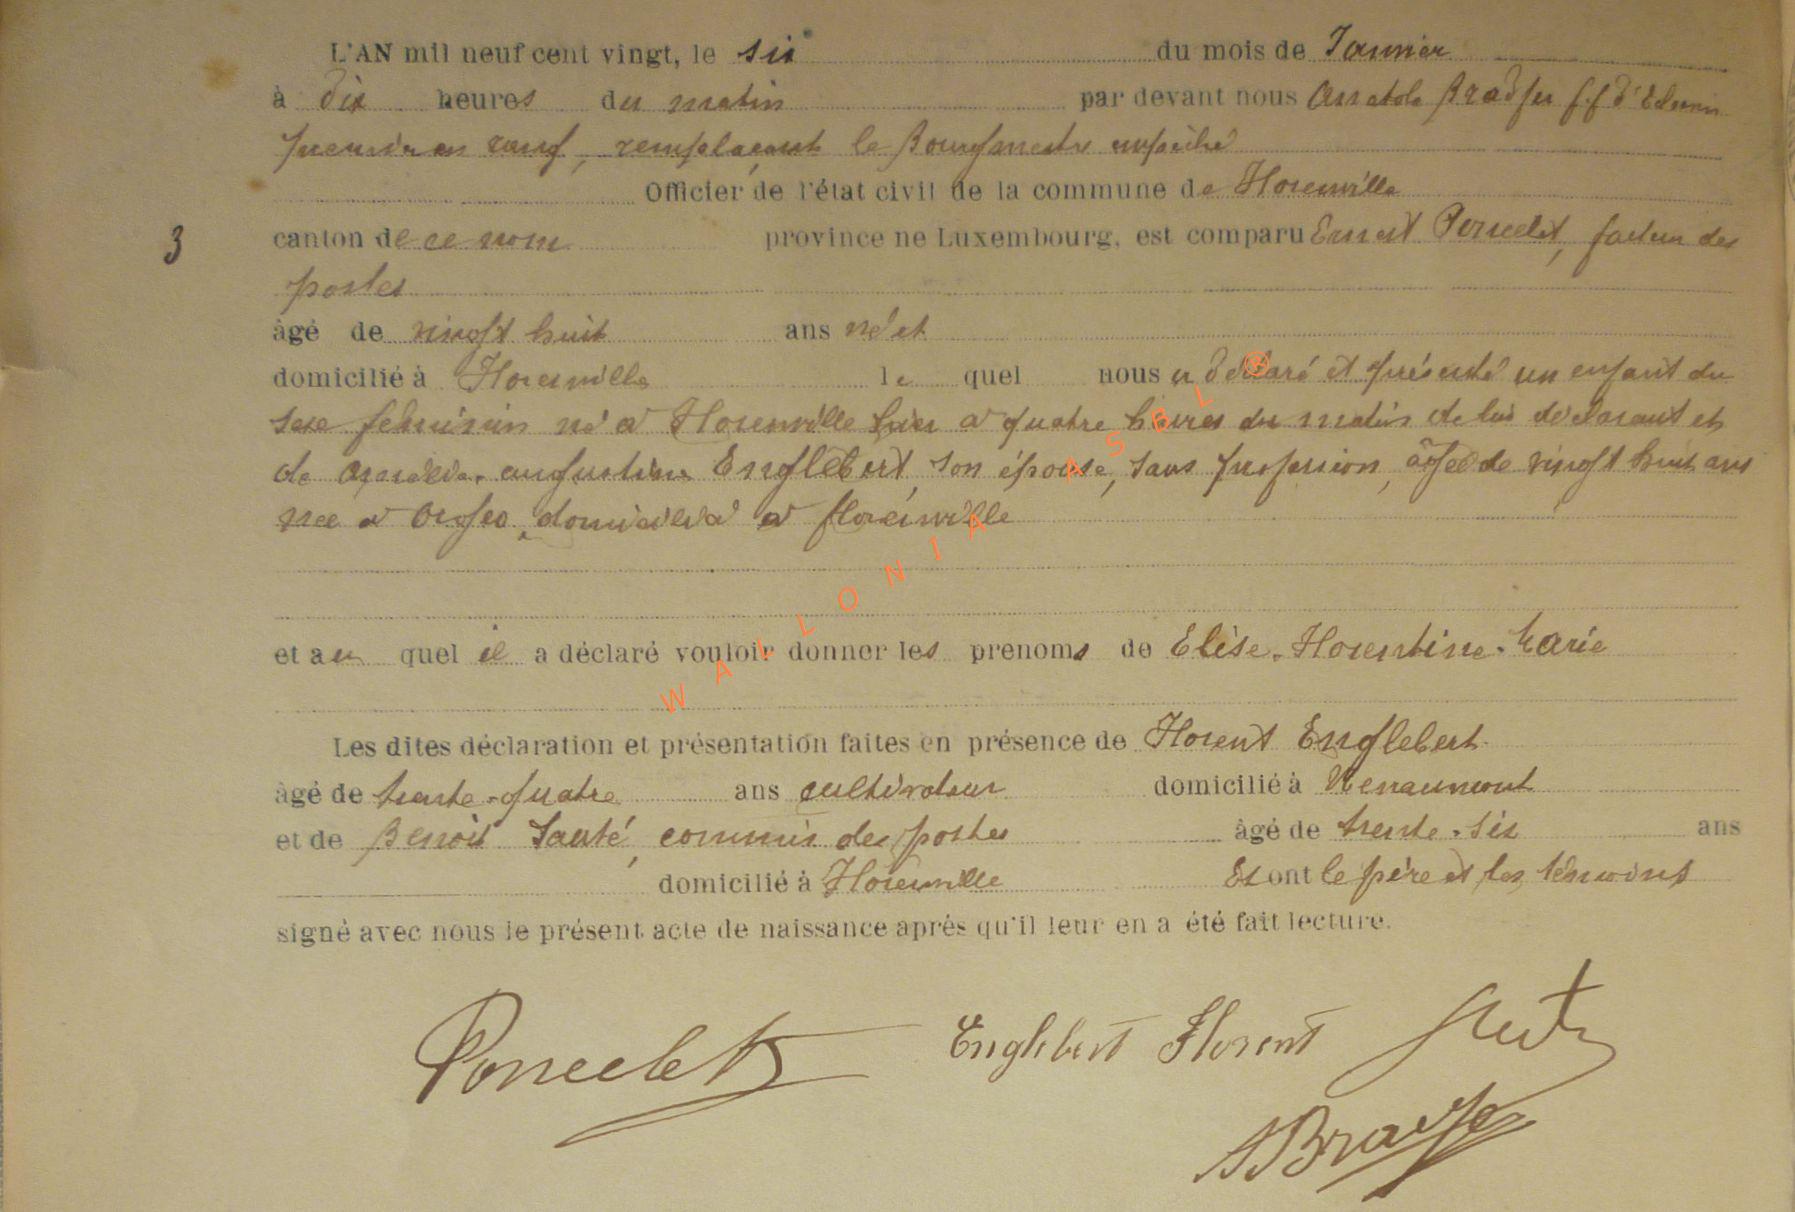 L'AN mil neuf cent vingt, le six du mois de Janvier
à dix heures du matin par devant nous Anatole Bradfer f.f. d'Echevin
premier en rang, remplaçant le Bourgmestre empêché
Officier de l'état civil de la commune de Florenville
3 canton de ce nom province ne Luxembourg, est comparu Ernest Poncelet, facteur des
postes
âgé de vingt huit ans né et
domicilié à Florenville le quel nous a déclaré et présenté un enfant du
sexe féminin né à Florenville hier à quatre heures du matin de lui déclarant et
de Augustine Englebert, son épouse, sans profession, âgée de vingt huit ans
née à Orgeo, domiciliée à Florenville
et au quel il a déclaré vouloir donner les prenoms de Elise-Florentine-Marie
Les dites déclaration et présentation faites en présence de Florent Englebert
âgé de trente-quatre ans cultivateur domicilié à Renaumont
et de Benoit Sauté, commis des postes âgé de trente-six ans
domicilié à Florenville Et ont le père et les témoins
signé avec nous le présent acte de naissance après qu'il leur en a été fait lecture.
Poncelet Englebert Florent
ABradfer
WALLONIA ASBL ®